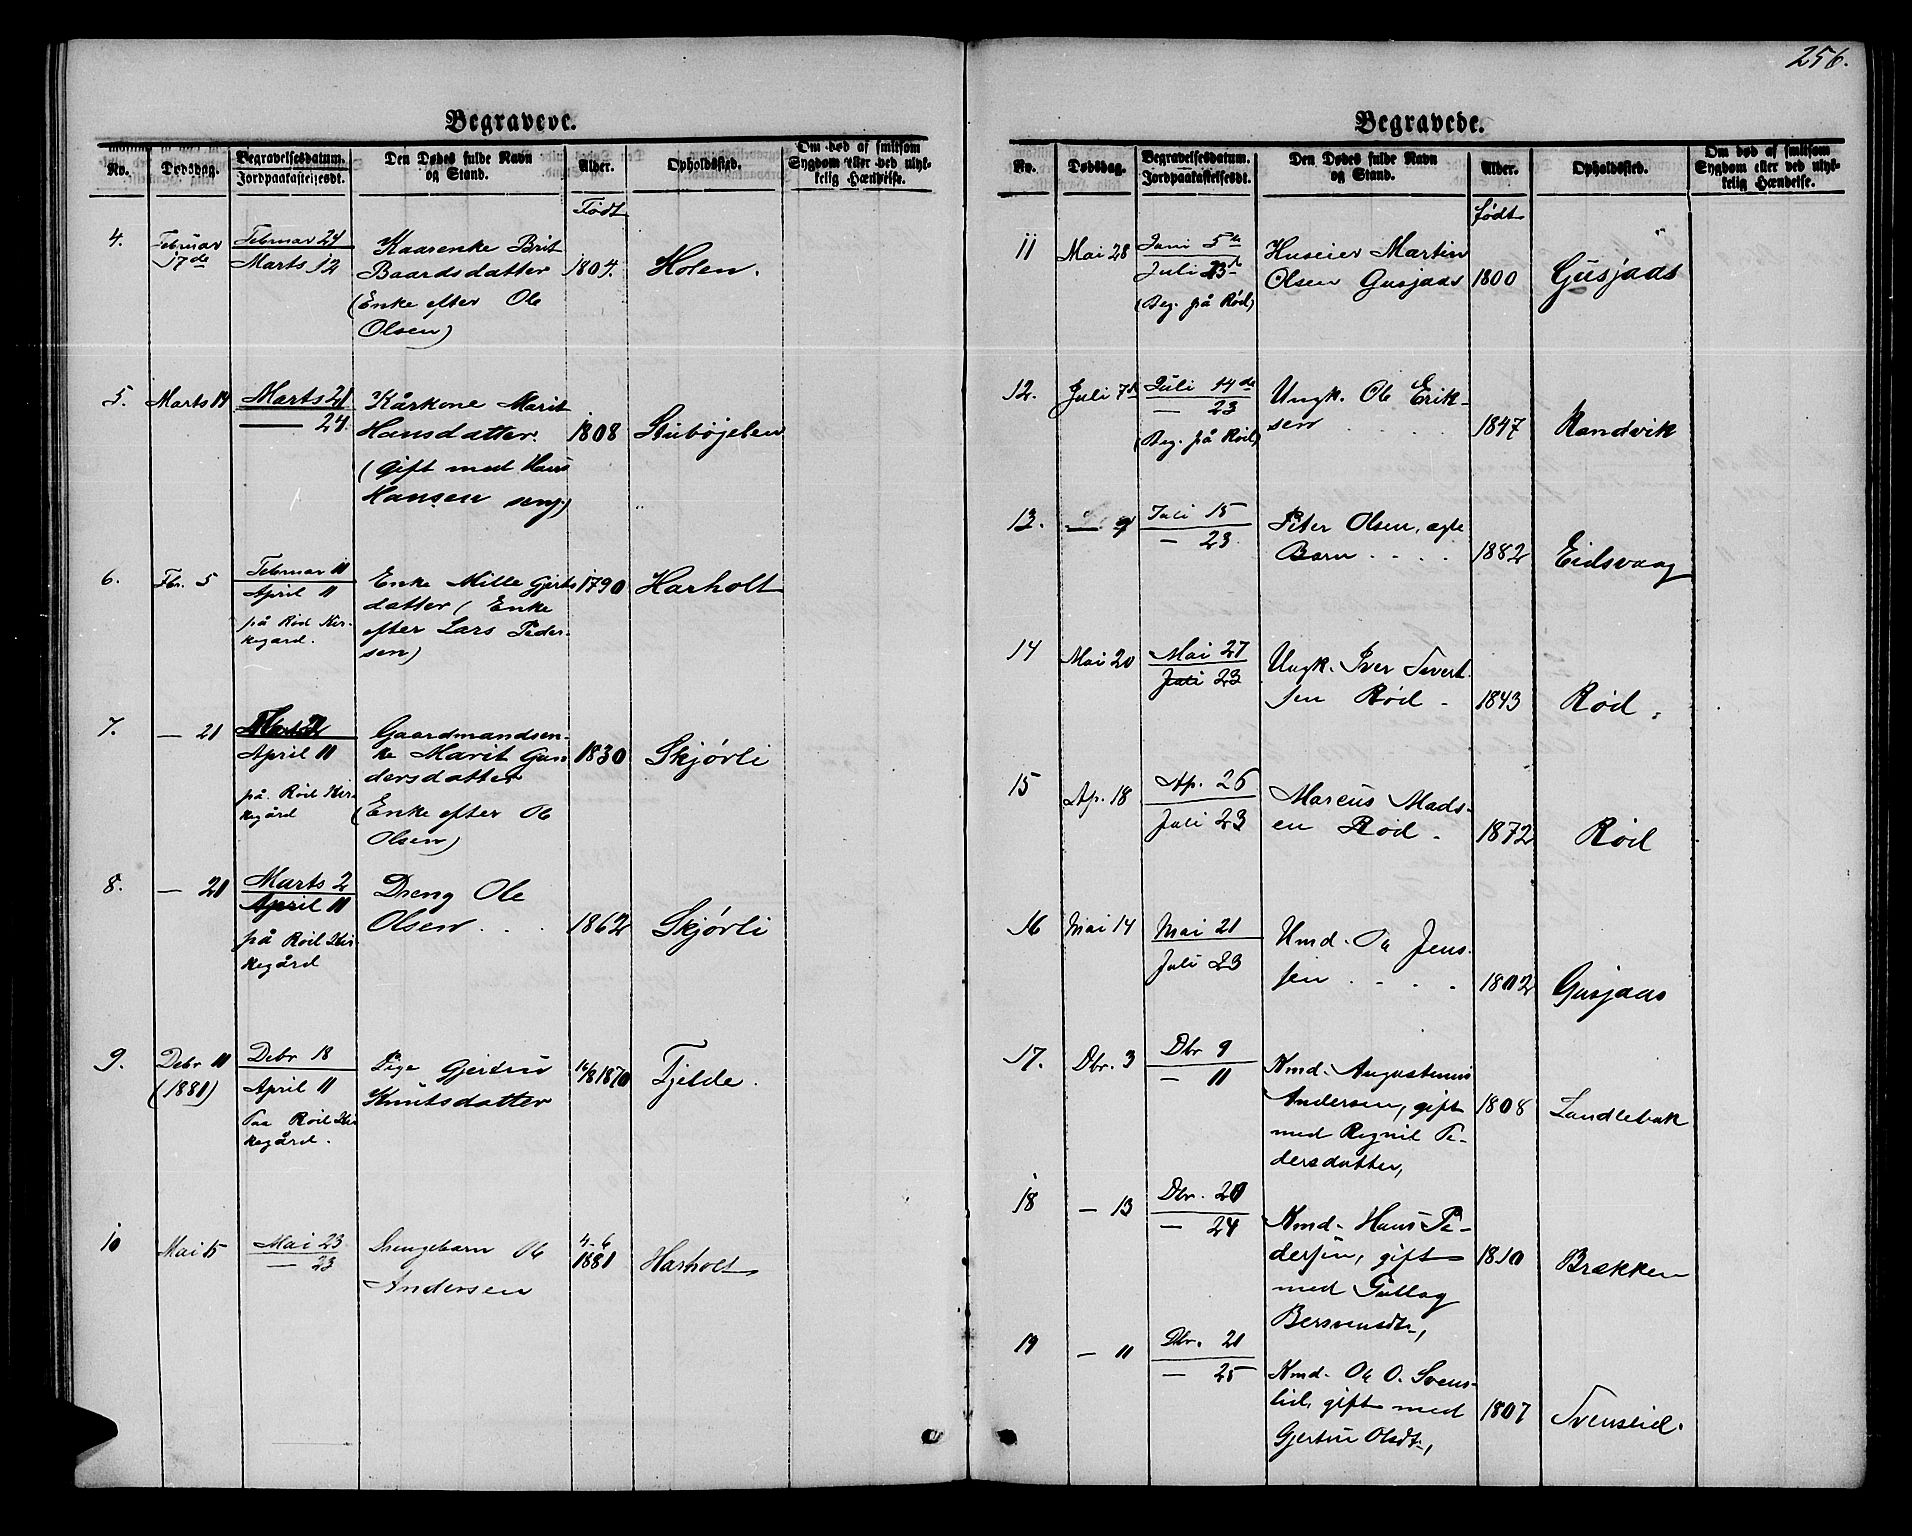 256.
Begravede.
No.
Dødsdag.
Begravelsesdatum.
Jordpaakastelsesdt.
Den Dødes fulde Navn
og Stand.
Alder.
Opholdssted.
Om død af smitsom
Sygdom eller ved ulyk-
kelig Hændelse.
Født
4.
Februar
17de
Februar 24
Marts 12
Kaarenke Brit
Baardsdatter
(Enke efter Ole
Olsen)
1804.
Holen.
5.
Marts 14
Marts 21
— 24.
Kårkone Marit
Hansdatter.
(gift med Hans
Hansen
1808
Stubøjelen
6.
Fbr. 5
Februar 11
April 11
på Rød Kir-
kegård.
Enke Mille Gjerts
datter (Enke
efter Lars Peder-
sen)
1790
Harholt
7.
— 21
April 11
på Rød Kir-
kegård
Gaardmandsen-
ke Marit Gun
dersdatter
(Enke efter Ole
Olsen)
1830
Skjørli
8.
— 21
Marts 2
April 11
på Rød Kir
kegård
Dreng Ole
Olsen . . .
1862
Skjørli
9.
Debr 11
(1881)
Debr 18
April 11
Paa Rød Kir
kegård.
Pige Gjertru
Knutsdatter
1870
Fjelde.
10
Mai 15
Mai 23
— 23
Drengebarn Ole
Andersen
4-6
1881
Harholt
Begravede.
No.
Dødsdag.
Begravelsesdatum.
Jordpaakastelsesdt.
Den Dødes fulde Navn
og Stand.
Alder.
Opholdssted.
Om død af smitsom
Sygdom eller ved ulyk-
kelig Hændelse.
født
11
Mai 28
Juni 5te
Juli 23d
(Beg. på Rød)
Huseier Martin
Olsen Gusjaas
1800
Gusjaas
12.
Juli 7d
Juli 14de
— 23
(Beg. på Rød)
Ungk. Ole Erik-
sen . . . .
1847
Randvik
13.
— 9
Juli 15
— 23.
Peter Olsen, ægte
Barn . . . .
1882
Eidsvaag
14
Mai 20
Mai 27
Juli 23
Ungk. Iver Sivert
sen Rød -
1843
Rød.
15
Ap. 18
Ap. 26
Juli 23
Marcus Mads-
en Rød -
1872
Rød
16
Mai 14
Mai 21
Juli 23
Kmd. Ole Jens-
sen . . . .
1802
Gusjaas
17.
Dbr. 3
Dbr 9
— 11
Kmd. Augustinus
Andersen, gift
med Ragnil Pe-
dersdatter,
1808
Landlebak
18
— 13
Dbr. 20
— 24
Kmd- Hans Pe-
dersen, gift
med Gullag
Bersvensdtr,
1810
Brækken
19
— 11
Dbr. 21
— 25
Kmd- Ole O. Svens-
lid, gift med
Gjertru Olsdtr,
1807
Svenslid.